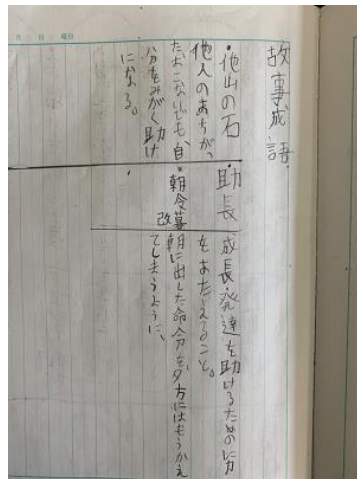 月 日 曜日
故事成語
・他山の石
他人のまちがっ
たおこないでも、自
分をみがく助け
になる。
・助長 成長・発達を助けるためのに力
をあたえること。
・朝令暮 朝に出した命令を、夕方にはもうかえ
改 てしまうように、